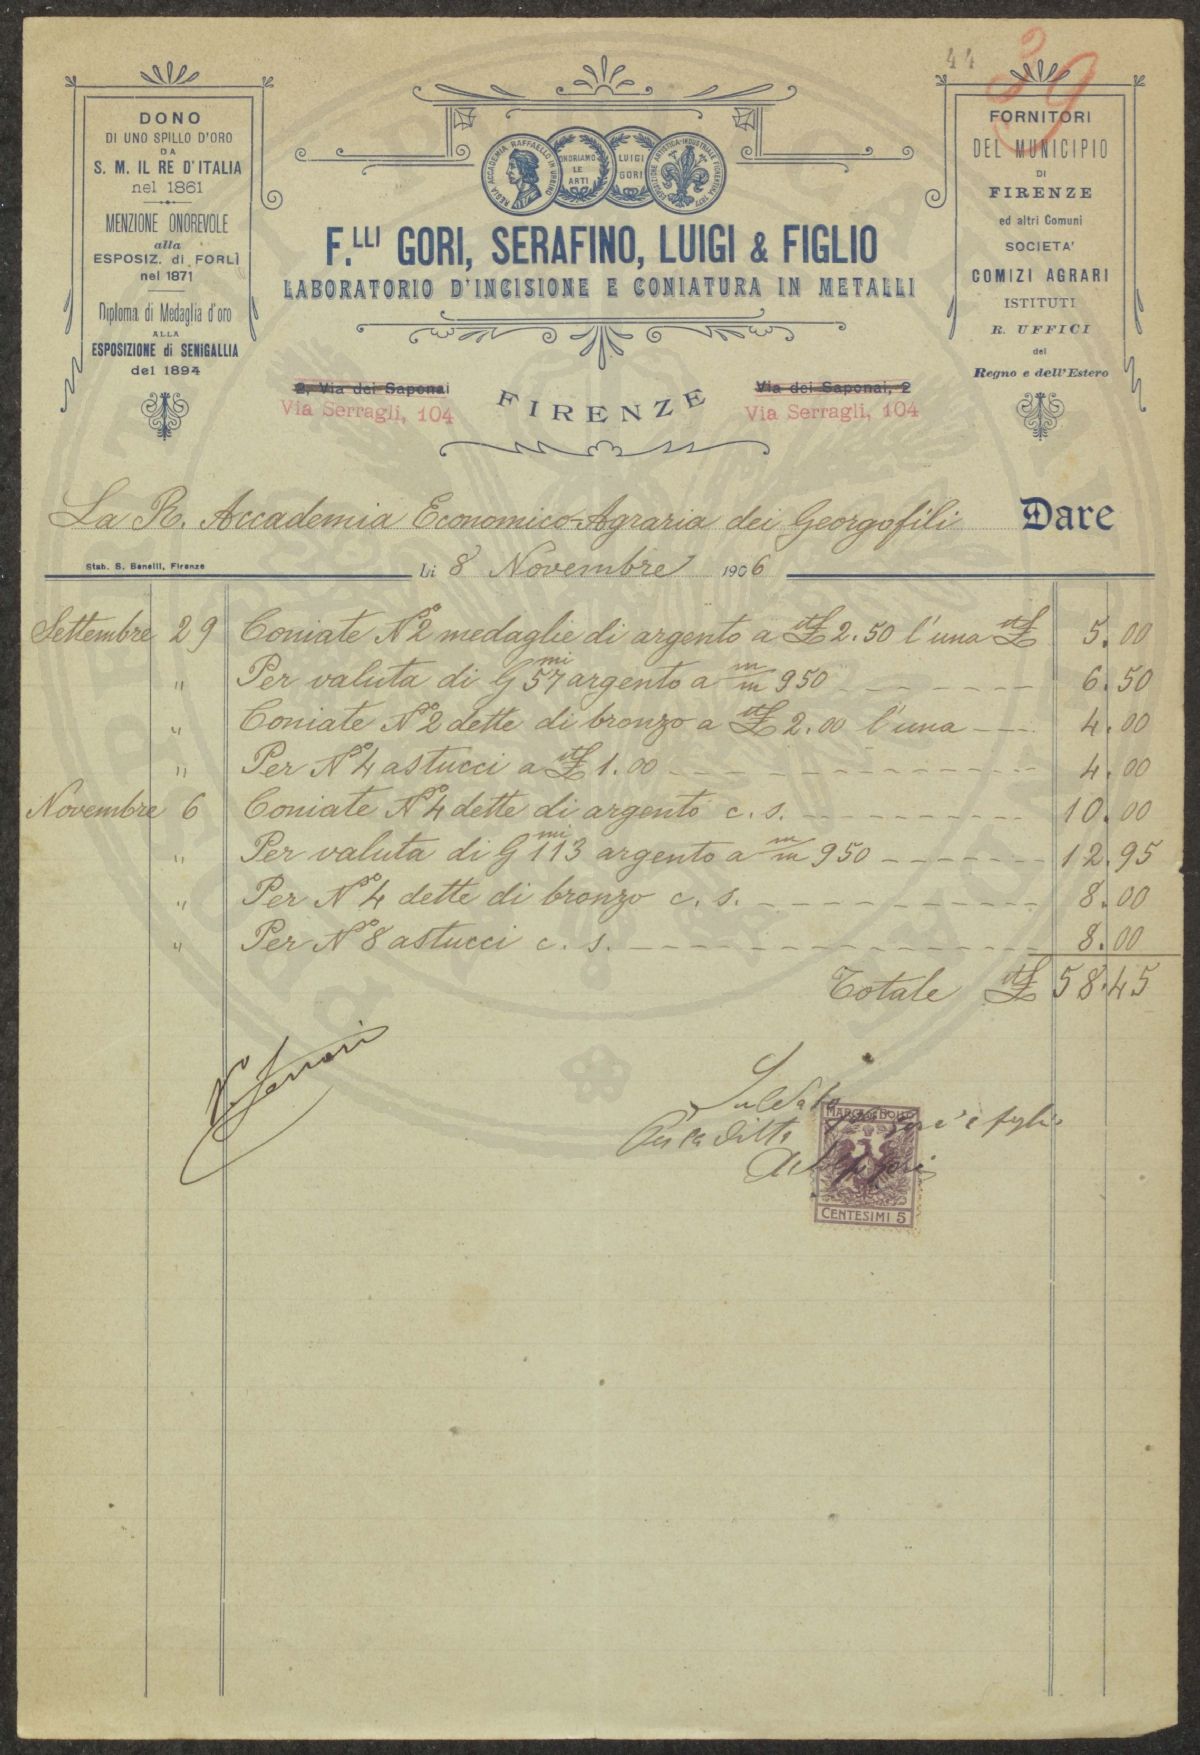 44
39
DONO
DI UNO SPILLO D'ORO
DA
S. M. IL RE D'ITALIA
nel 1861
MENZIONE ONOREVOLE
alla
ESPOSIZ. di FORLÌ
nel 1871
Diploma di Medaglia d'oro
ALLA
ESPOSIZIONE di SENIGALLIA
del 1894
REGIA ACCADEMIA RAFFAELLO IN URBINO
ONORIAMO
LE
ARTI
LUIGI
GORI
ESPOSIZIONE ARTISTICA-INDUSTRIALE FIORENTINA 1877
F.LLI GORI, SERAFINO, LUIGI & FIGLIO
LABORATORIO D'INCISIONE E CONIATURA IN METALLI
FORNITORI
DEL MUNICIPIO
DI
FIRENZE
ed altri Comuni
SOCIETA'
COMIZI AGRARI
ISTITUTI
R. UFFICI
del
Regno e dell'Estero
2, Via dei Saponai
Via Serragli, 104
FIRENZE
Via dei Saponai, 2
Via Serragli, 104
La R. Accademia Economico-Agraria dei Georgofili Dare
Stab. S. Benelli, Firenze
Li 8 Novembre 1906
Settembre 29 Coniate No 2 medaglie di argento a it£ 2.50 l'una it£ 5.00
" Per valuta di Gmi 57 argento a m/m 950 6.50
" Coniate No 2 dette di bronzo a it£ 2.00 l'una 4.00
" Per No 4 astucci a it£ 1.00 4.00
Novembre 6 Coniate No 4 dette di argento c. s. 10.00
" Per valuta di Gmi 113 argento a m/m 950 12.95
" Per No 4 dette di bronzo c. s. 8.00
" Per No 8 astucci c. s. 8.00
Totale it£ 58.45
Saldato
Per la Ditta Gori e figlio
Gori
MARCA DA BOLLO
CENTESIMI 5